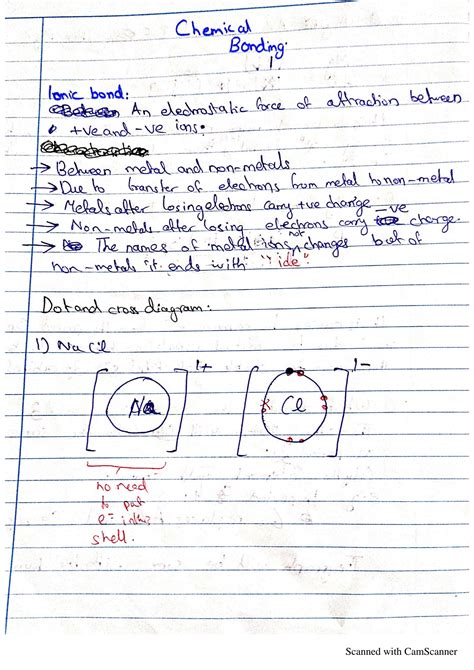 Chemical
Bonding.
1.
Ionic bond:
An electrostatic force of attraction between
+ve and -ve ions.
→ Between metal and non-metals
→ Due to transfer of electrons from metal to non-metal
→ Metals after losing electrons carry +ve charge.
→ Non-metals after losing electrons carry -ve charge.
→ The names of metal ions not changes but of
non-metals it ends with "ide".
Dot and cross diagram:
1) NaCl
1+ 1-
Na Cl
no need
to put
e- in the
shell.
Scanned with CamScanner